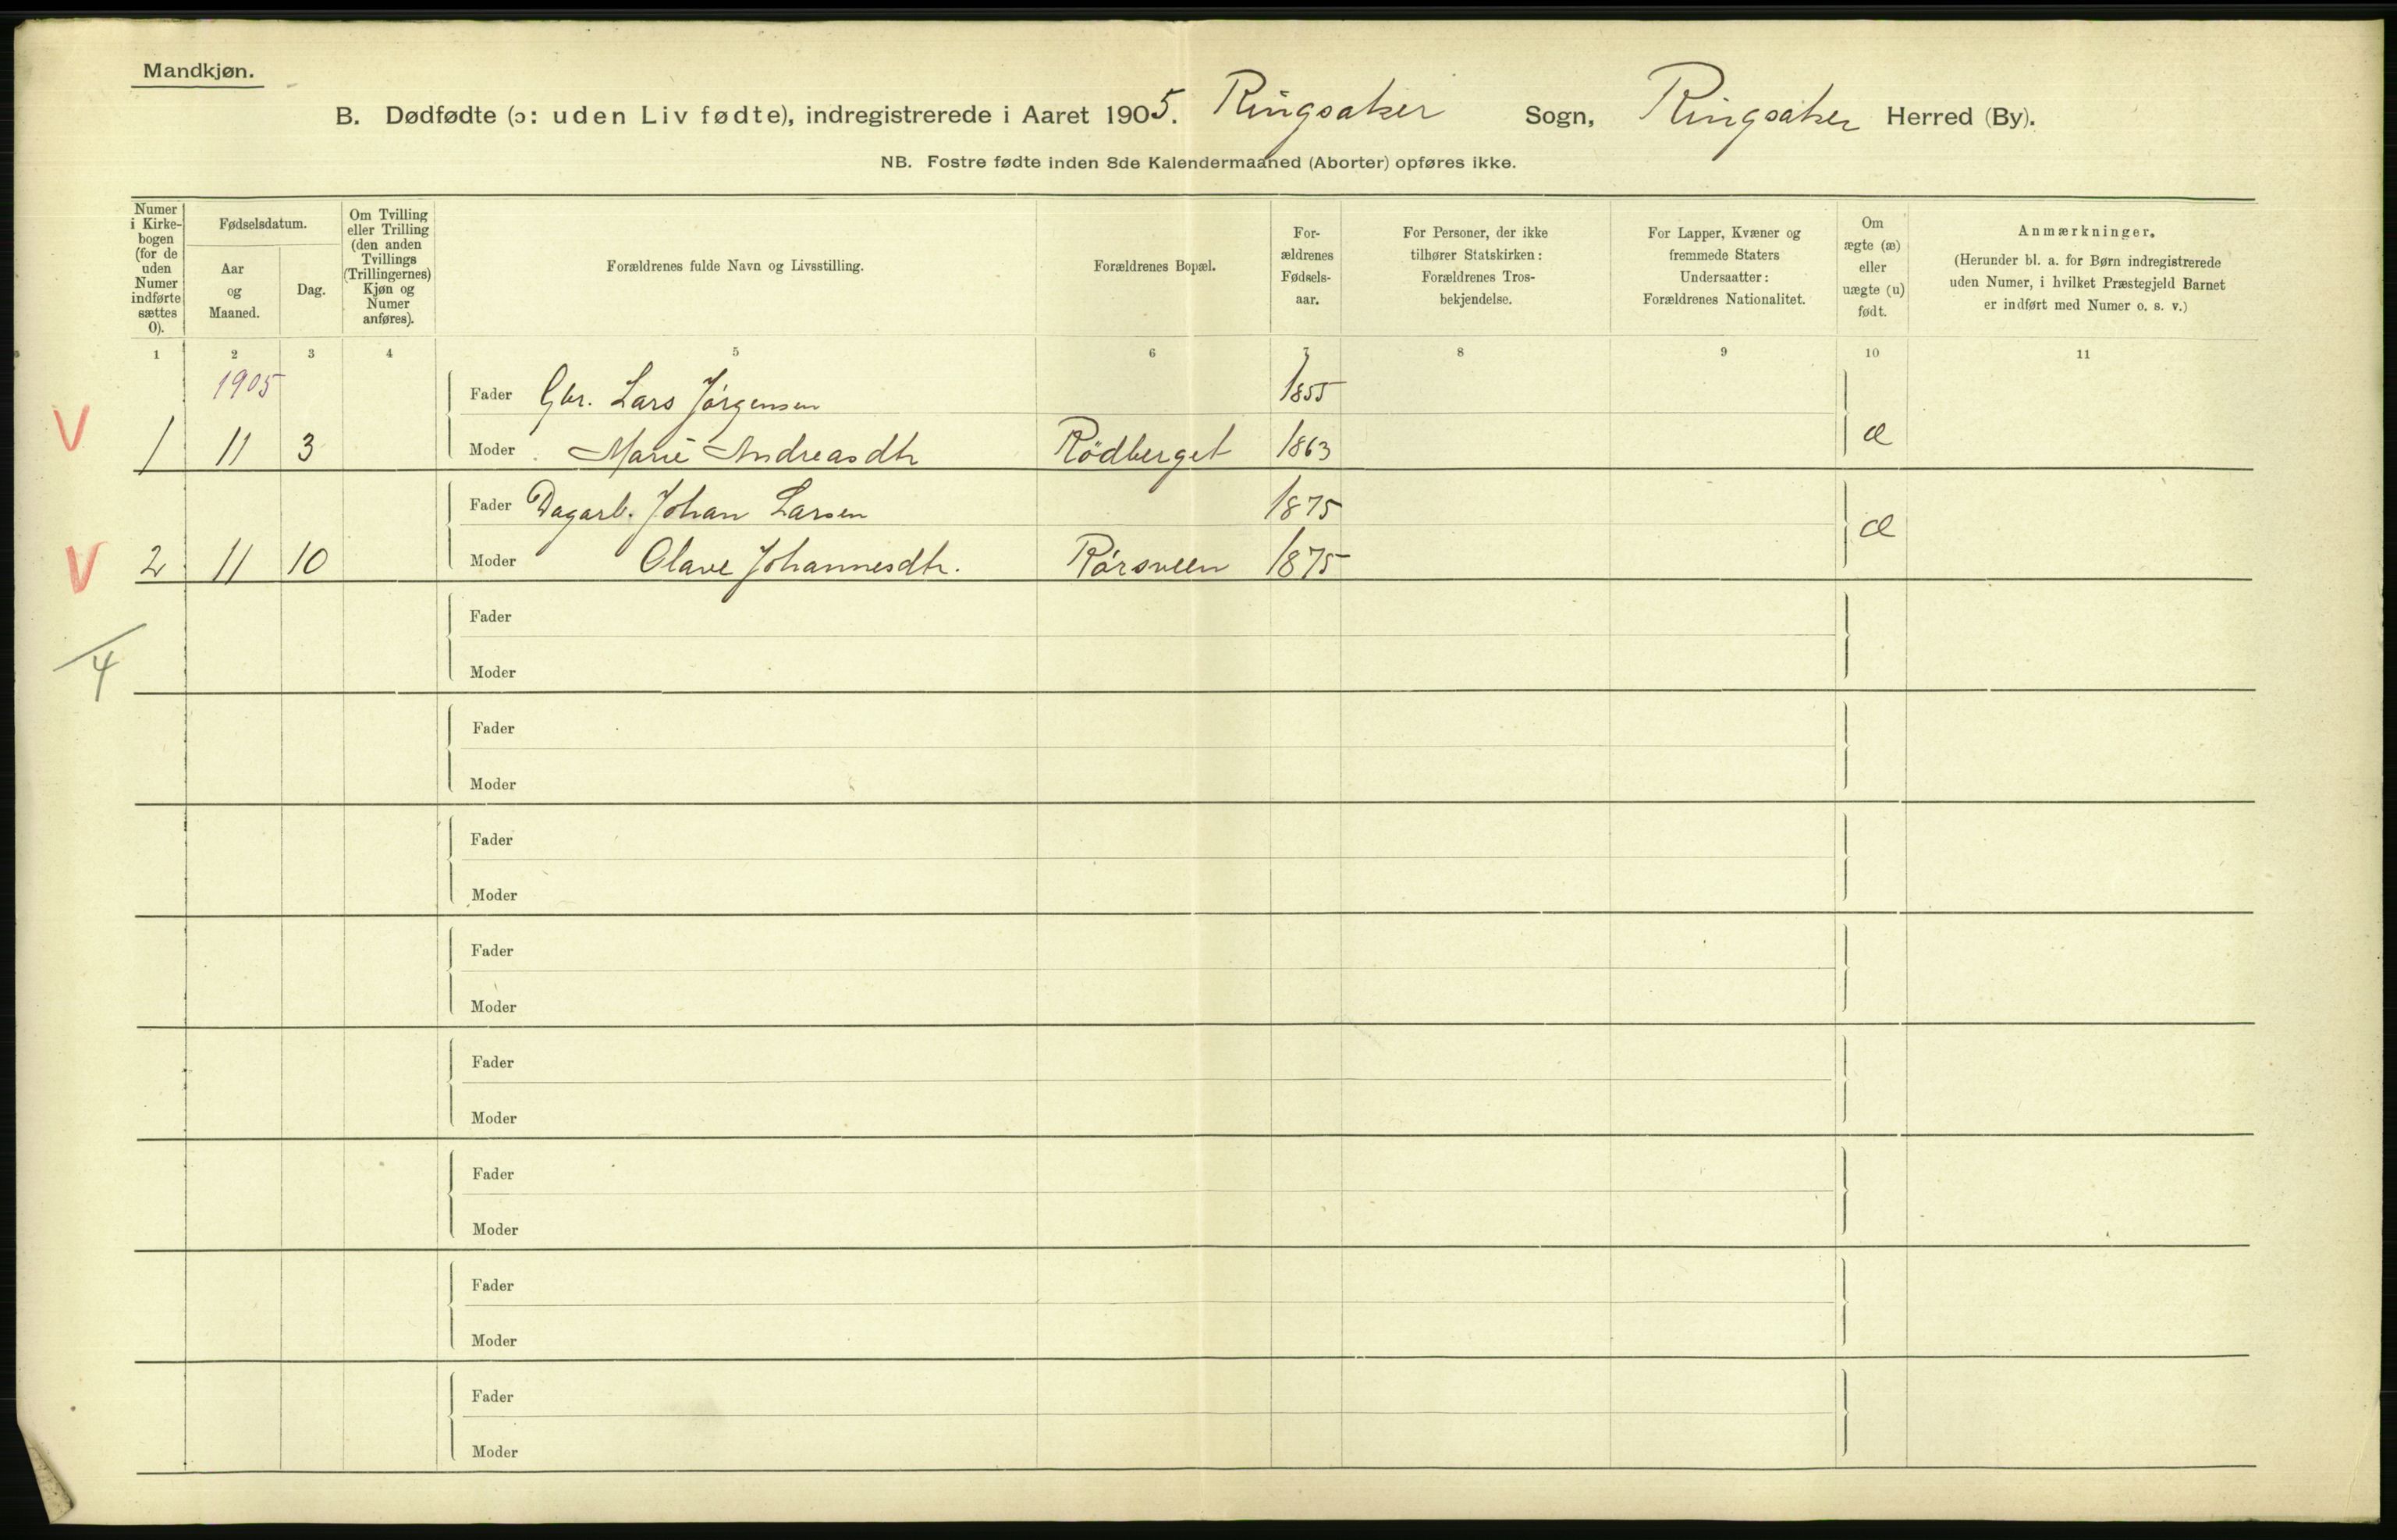 Mandkjøn.
B. Dødfødte (ɔ: uden Liv fødte), indregistrerede i Aaret 1905. Ringsaker Sogn, Ringsaker Herred (By).
NB. Fostre fødte inden 8de Kalendermaaned (Aborter) opføres ikke.
Numer i Kirke-bogen (for de uden Numer indførte sættes 0).
Fødselsdatum.
Aar og Maaned.
Dag.
Om Tvilling eller Trilling (den anden Tvillings (Trillingernes) Kjøn og Numer anføres).
Forældrenes fulde Navn og Livsstilling.
Forældrenes Bopæl.
For-ældrenes Fødsels-aar.
For Personer, der ikke tilhører Statskirken: Forældrenes Tros-bekjendelse.
For Lapper, Kvæner og fremmede Staters Undersaatter: Forældrenes Nationalitet.
Om ægte (æ) eller uægte (u) født.
Anmærkninger.
(Herunder bl. a. for Børn indregistrerede uden Numer, i hvilket Præstegjeld Barnet er indført med Numer o. s. v.)
1 2 3 4 5 6 7 8 9 10 11
1905 Fader Gbr. Lars Jørgensen 1855
V 1 11 3 Moder Marie Andreasdtr Rødberget 1863 æ
Fader Dagarb. Johan Larsen 1875
V 2 11 10 Moder Olave Johannesdtr. Rørsveen 1875 æ
Fader
4
Moder
Fader
Moder
Fader
Moder
Fader
Moder
Fader
Moder
Fader
Moder
Fader
Moder
Fader
Moder